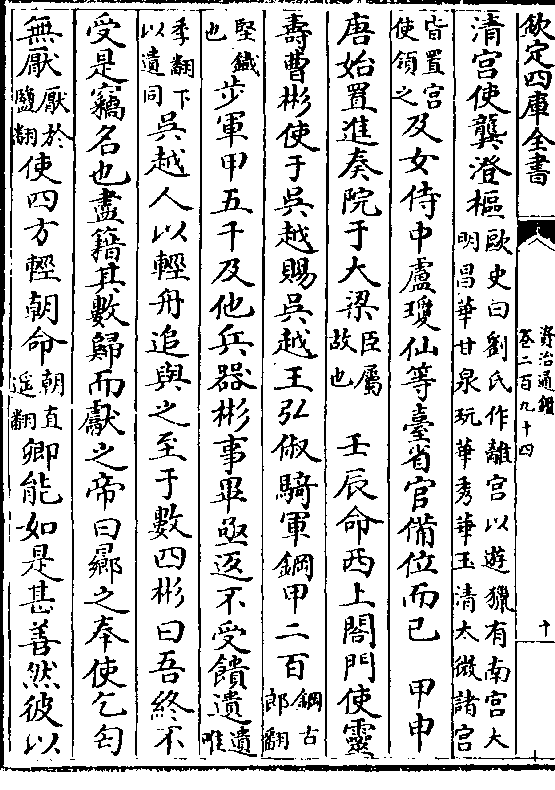 欽定四庫全書
資治通鑑
卷二百九十四
十
清宫使龔澄樞歐史曰劉氏作離宫以遊獵有南宫大
明昌華甘泉玩華秀華玉清太微諸宫
皆置宫
使領之及女侍中盧瓊仙等臺省官備位而已　甲申
唐始置進奏院于大梁臣屬
故也　壬辰命西上閤門使靈
壽曹彬使于吳越賜吳越王弘俶騎軍鋼甲二百鋼古
郎翻
堅鐵
也步軍甲五千及他兵器彬事畢亟返不受饋遺遺
唯
季翻下
以遺同吳越人以輕舟追與之至于數四彬曰吾終不
受是竊名也盡籍其數歸而獻之帝曰曏之奉使乞匄
無厭厭於
鹽翻使四方輕朝命朝直
遥翻卿能如是甚善然彼以